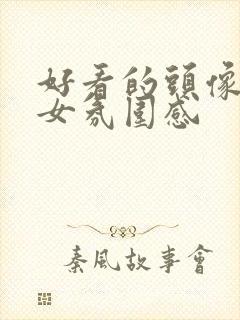 好看的頭像
女氛圍感
秦風故事會